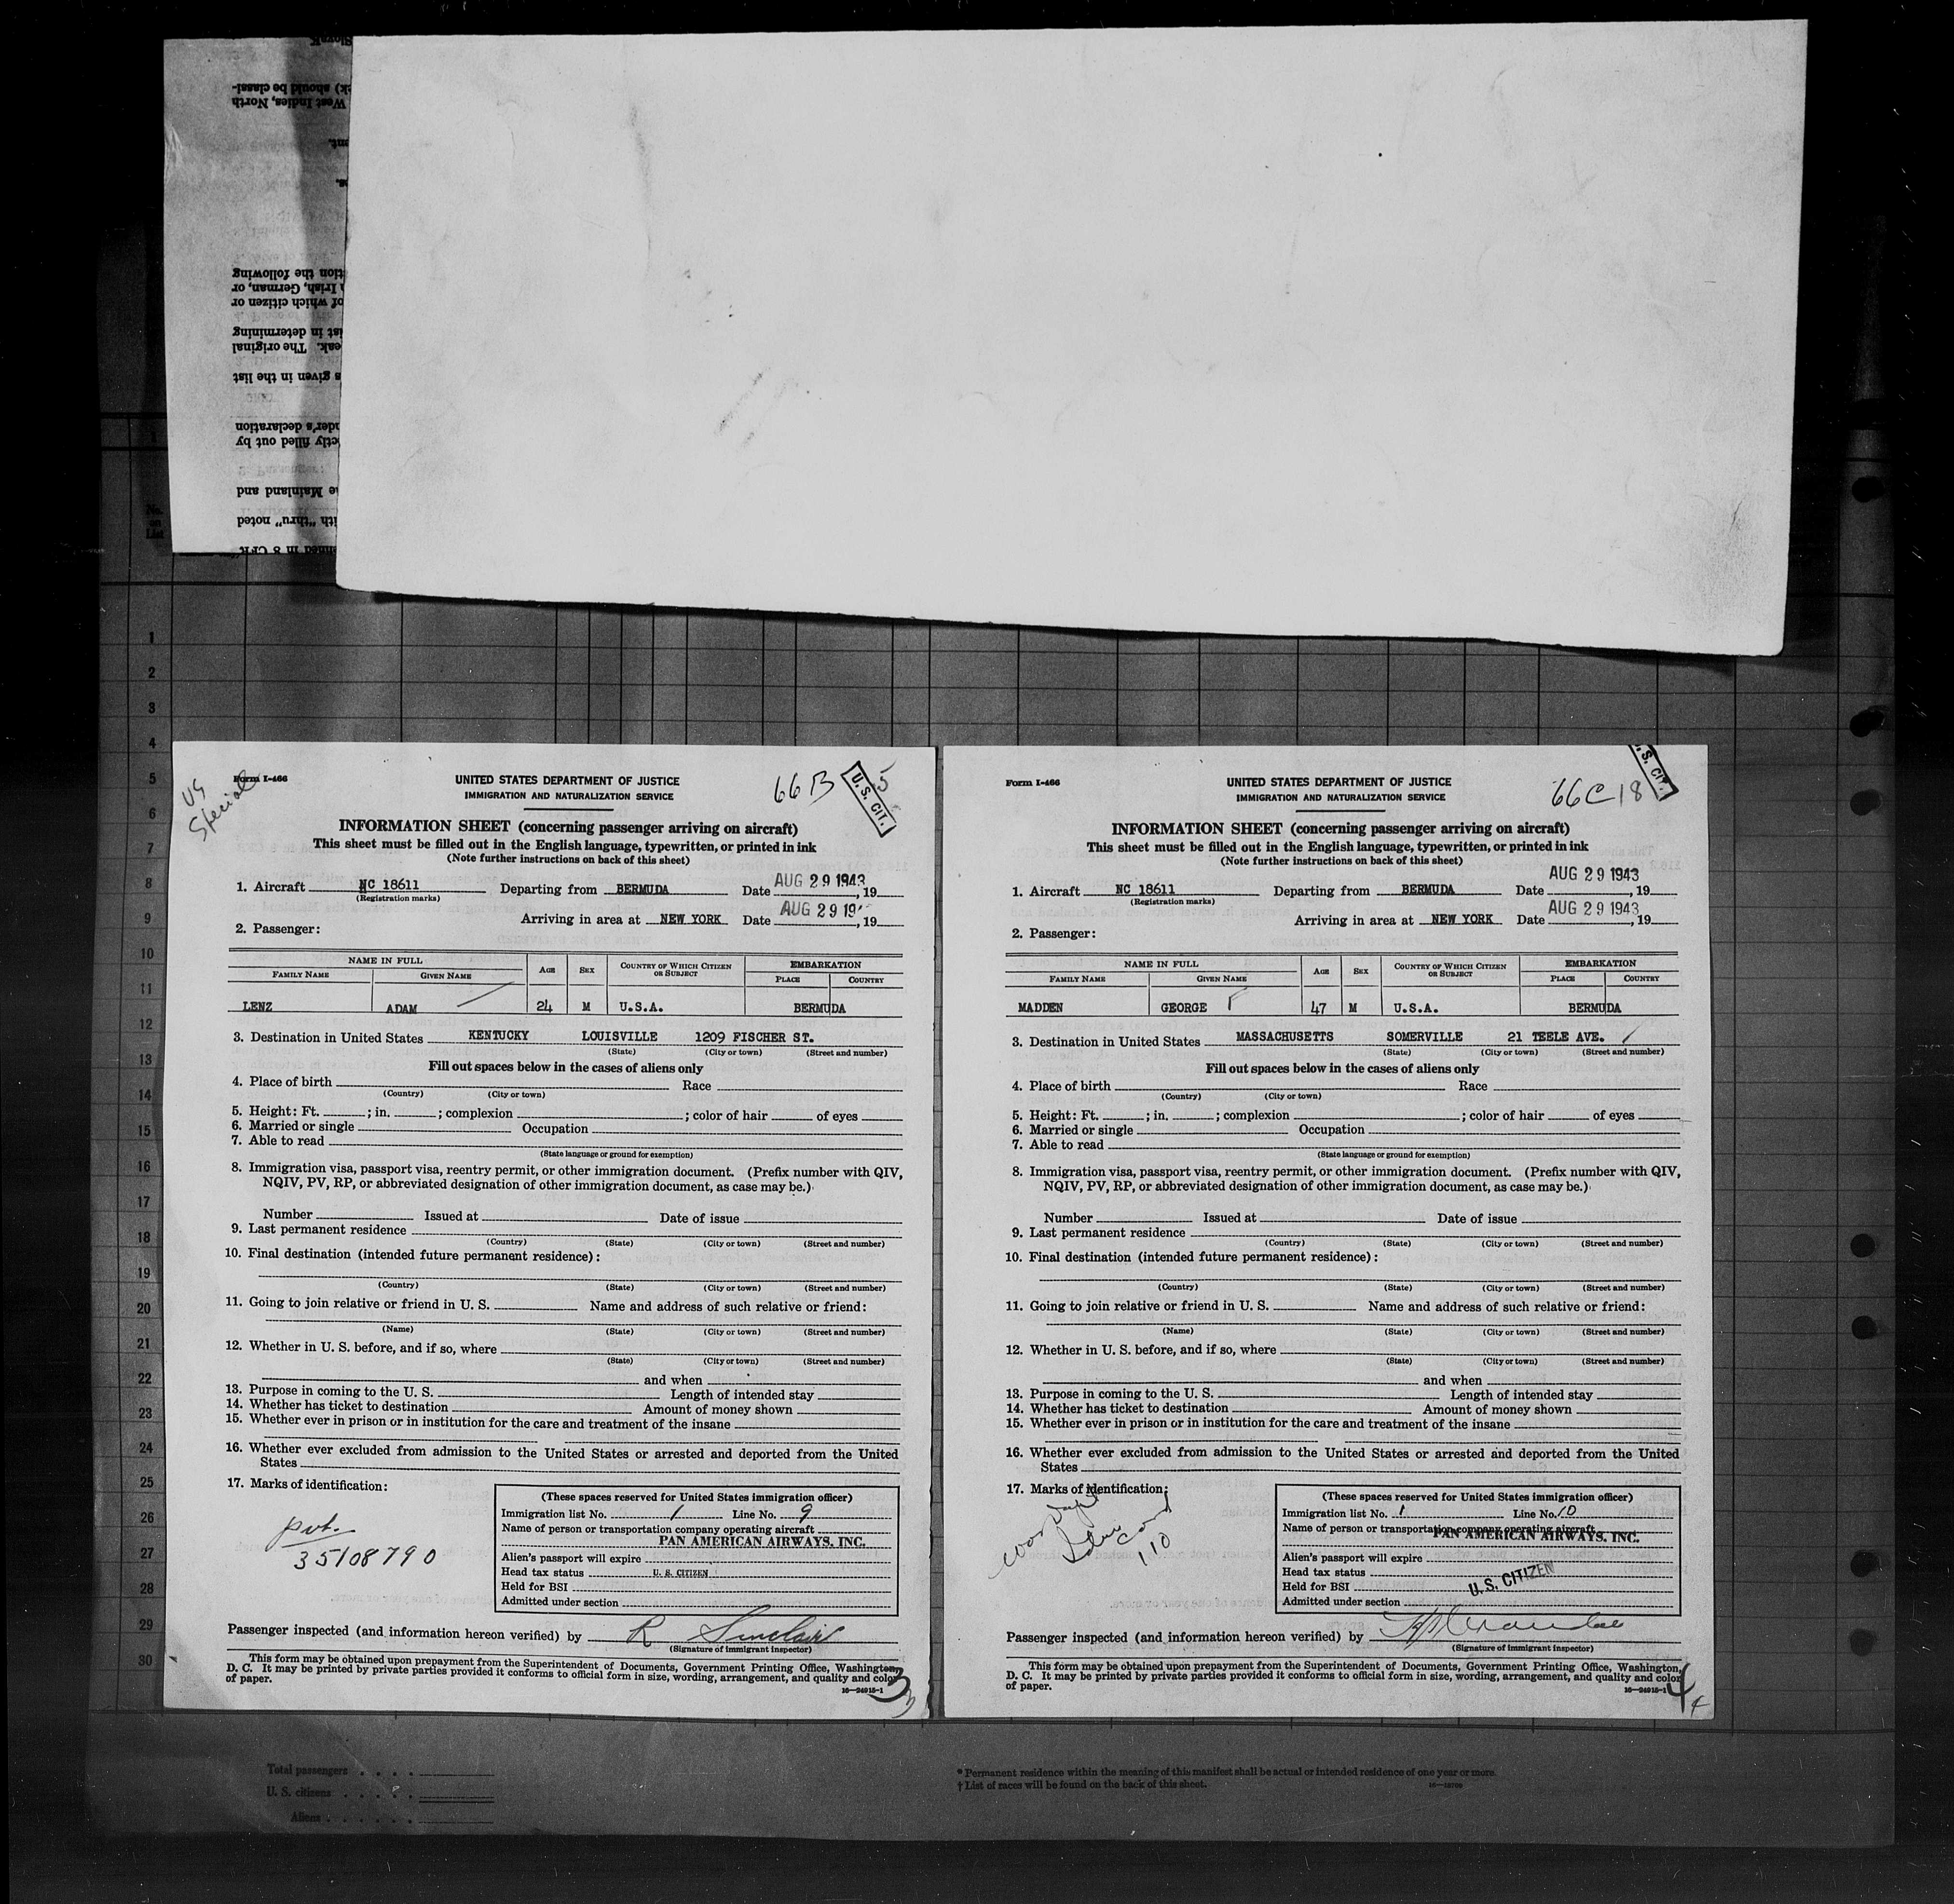 Slovak
ck) should be classi-
West Indies, North
ent.
s.
tion the following
Irish, German, or
of which citizen or
ist in determining
eak. The original
s given in the list
nder's declaration
ctly filled out by
e Mainland and
ith "thru" noted
ned in 8 CFR
No. on List
1
2
3
4
5
6
7
8
9
10
11
12
13
14
15
16
17
18
19
20
21
22
23
24
25
26
27
28
29
30
US Special
Form I-466
UNITED STATES DEPARTMENT OF JUSTICE
IMMIGRATION AND NATURALIZATION SERVICE
66B
U.S. CIT.
5
INFORMATION SHEET (concerning passenger arriving on aircraft)
This sheet must be filled out in the English language, typewritten, or printed in ink
(Note further instructions on back of this sheet)
1. Aircraft NC 18611 Departing from BERMUDA Date AUG 29 1943, 19
(Registration marks)
Arriving in area at NEW YORK Date AUG 29 19, 19
2. Passenger:
NAME IN FULL
FAMILY NAME GIVEN NAME AGE SEX COUNTRY OF WHICH CITIZEN OR SUBJECT EMBARKATION
PLACE COUNTRY
LENZ ADAM 24 M U.S.A. BERMUDA
3. Destination in United States KENTUCKY LOUISVILLE 1209 FISCHER ST.
(State) (City or town) (Street and number)
Fill out spaces below in the cases of aliens only
4. Place of birth Race
(Country) (City or town)
5. Height: Ft. ; in. ; complexion ; color of hair of eyes
6. Married or single Occupation
7. Able to read
(State language or ground for exemption)
8. Immigration visa, passport visa, reentry permit, or other immigration document. (Prefix number with QIV,
NQIV, PV, RP, or abbreviated designation of other immigration document, as case may be.)
Number Issued at Date of issue
9. Last permanent residence
(Country) (State) (City or town) (Street and number)
10. Final destination (intended future permanent residence):
(Country) (State) (City or town) (Street and number)
11. Going to join relative or friend in U. S. Name and address of such relative or friend:
(Name) (State) (City or town) (Street and number)
12. Whether in U. S. before, and if so, where
(State) (City or town) (Street and number)
and when
13. Purpose in coming to the U. S. Length of intended stay
14. Whether has ticket to destination Amount of money shown
15. Whether ever in prison or in institution for the care and treatment of the insane
16. Whether ever excluded from admission to the United States or arrested and deported from the United
States
17. Marks of identification:
pvt.
35108790
(These spaces reserved for United States immigration officer)
Immigration list No. 1 Line No. 9
Name of person or transportation company operating aircraft
PAN AMERICAN AIRWAYS, INC.
Alien's passport will expire
Head tax status U. S. CITIZEN
Held for BSI
Admitted under section
Passenger inspected (and information hereon verified) by R Sinclair
(Signature of immigrant inspector)
This form may be obtained upon prepayment from the Superintendent of Documents, Government Printing Office, Washington,
D. C. It may be printed by private parties provided it conforms to official form in size, wording, arrangement, and quality and color
of paper.
16—24915-1
3
3
Form I-466
UNITED STATES DEPARTMENT OF JUSTICE
IMMIGRATION AND NATURALIZATION SERVICE
66C 18
.S. CIT.
INFORMATION SHEET (concerning passenger arriving on aircraft)
This sheet must be filled out in the English language, typewritten, or printed in ink
(Note further instructions on back of this sheet)
1. Aircraft NC 18611 Departing from BERMUDA Date AUG 29 1943, 19
(Registration marks)
Arriving in area at NEW YORK Date AUG 29 1943, 19
2. Passenger:
NAME IN FULL
FAMILY NAME GIVEN NAME AGE SEX COUNTRY OF WHICH CITIZEN OR SUBJECT EMBARKATION
PLACE COUNTRY
MADDEN GEORGE 47 M U.S.A. BERMUDA
3. Destination in United States MASSACHUSETTS SOMERVILLE 21 TEELE AVE.
(State) (City or town) (Street and number)
Fill out spaces below in the cases of aliens only
4. Place of birth Race
(Country) (City or town)
5. Height: Ft. ; in. ; complexion ; color of hair of eyes
6. Married or single Occupation
7. Able to read
(State language or ground for exemption)
8. Immigration visa, passport visa, reentry permit, or other immigration document. (Prefix number with QIV,
NQIV, PV, RP, or abbreviated designation of other immigration document, as case may be.)
Number Issued at Date of issue
9. Last permanent residence
(Country) (State) (City or town) (Street and number)
10. Final destination (intended future permanent residence):
(Country) (State) (City or town) (Street and number)
11. Going to join relative or friend in U. S. Name and address of such relative or friend:
(Name) (State) (City or town) (Street and number)
12. Whether in U. S. before, and if so, where
(State) (City or town) (Street and number)
and when
13. Purpose in coming to the U. S. Length of intended stay
14. Whether has ticket to destination Amount of money shown
15. Whether ever in prison or in institution for the care and treatment of the insane
16. Whether ever excluded from admission to the United States or arrested and deported from the United
States
17. Marks of identification:
War Dept
Iden card
110
(These spaces reserved for United States immigration officer)
Immigration list No. 1 Line No. 10
Name of person or transportation company operating aircraft
PAN AMERICAN AIRWAYS, INC.
Alien's passport will expire
Head tax status
Held for BSI U. S. CITIZEN
Admitted under section
Passenger inspected (and information hereon verified) by
(Signature of immigrant inspector)
This form may be obtained upon prepayment from the Superintendent of Documents, Government Printing Office, Washington,
D. C. It may be printed by private parties provided it conforms to official form in size, wording, arrangement, and quality and color
of paper.
16—24915-1
4
4
Total passengers
U. S. citizens
Aliens
* Permanent residence within the meaning of this manifest shall be actual or intended residence of one year or more.
† List of races will be found on the back of this sheet.